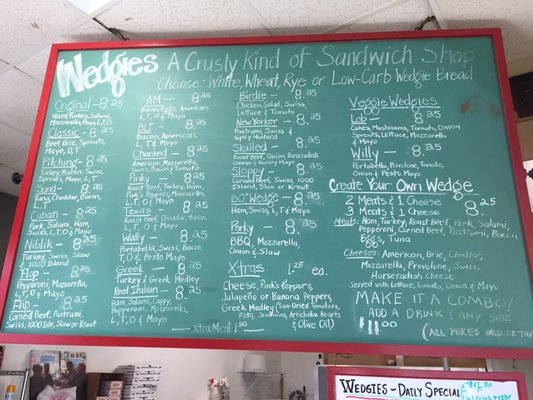 Wedgies A Crusty Kind of Sandwich Shop
Choose: White, Wheat, Rye or Low-Carb Wedgie Bread
Original - 8.25
Ham, Turkey, Salami,
Mozzarella, L, T, O
Classic - 8.25
Beef, Brie, Sprouts,
Mayo, O, T
Pitching - 8.25
Turkey, Bacon, Swiss,
Sand 8.25
Tuna, Cheddar, Bacon,
L, T, O
Cuban - 8.25
Pork, Salami, Ham,
Swiss, L, T, O, Mayo
Niblik - 8.25
Turkey, Swiss, Slaw
1000 Island
Flop - 8.25
Pepperoni, Mozzarella,
L, T, O & Mayo
Flip - 8.25
Corned Beef, Pastrami,
Swiss, 1000 Isle, Slaw or Kraut
AM - 8.25
Bacon, Eggs, American,
L, T, O & Mayo
BLT - 8.25
Bacon, American,
L, T & Mayo
Chunked - 8.25
American, Mozzarella,
Swiss, Bacon & Tomato
Pinky - 8.25
Roast Beef, Turkey, Ham,
Pink's Peppers, Mozzarella,
L, T, O & Mayo
Texas - 8.25
Roast Beef, Cheddar, Bacon
L, T, O & Mayo
Wally - 8.25
Portabella, Swiss, Bacon,
T, O & Pesto Mayo
Greek - 8.25
Turkey & Greek Medley
Real Italian - 8.25
Ham, Salami, Cappy,
Pepperoni, Mozzarella,
L, T, O & Mayo
Xtra Meat 1.50
Birdie - 8.25
Chicken Salad, Swiss,
Lettuce & Tomato
New Yorker - 8.25
Pastrami, Swiss &
Spicy Mustard
Skulled - 8.25
Roast Beef, Onion, Horseradish
Cheese & Honey Mayo
Sloppy - 8.25
Corned Beef, Swiss, 1000
Island, Slaw or Kraut
60° Wedge - 8.25
Ham, Swiss, L, T & Mayo
Porky - 8.25
BBQ, Mozzarella,
Onion & Slaw
Xtras 1.25 ea.
Cheese, Pink's Peppers,
Jalapeño or Banana Peppers
Greek Medley (Sun-Dried Tomatoes,
Feta, Scallions, Artichoke Hearts
& Olive Oil)
Veggie Wedgies
Lob - 8.25
Cukes, Mushrooms, Tomato, Onion
Sprouts, Lettuce, Mozzarella
and Mayo
Willy - 8.25
Portabella, Provolone, Tomato,
Onion & Pesto Mayo
Create Your Own Wedge
2 Meats & 1 Cheese
3 Meats & 1 Cheese 8.25
Meats: Ham, Turkey, Roast Beef, Pork, Salami,
Pepperoni, Corned Beef, Pastrami, Bacon
Eggs, Tuna
Cheeses: American, Brie, Cheddar,
Mozzarella, Provolone, Swiss,
Horseradish Cheese
Served with Lettuce, Tomato, Onion & Mayo
Make it a Combo!
Add a Drink (Any Size
$11.00
(All Prices
Wedgies - Daily Specials